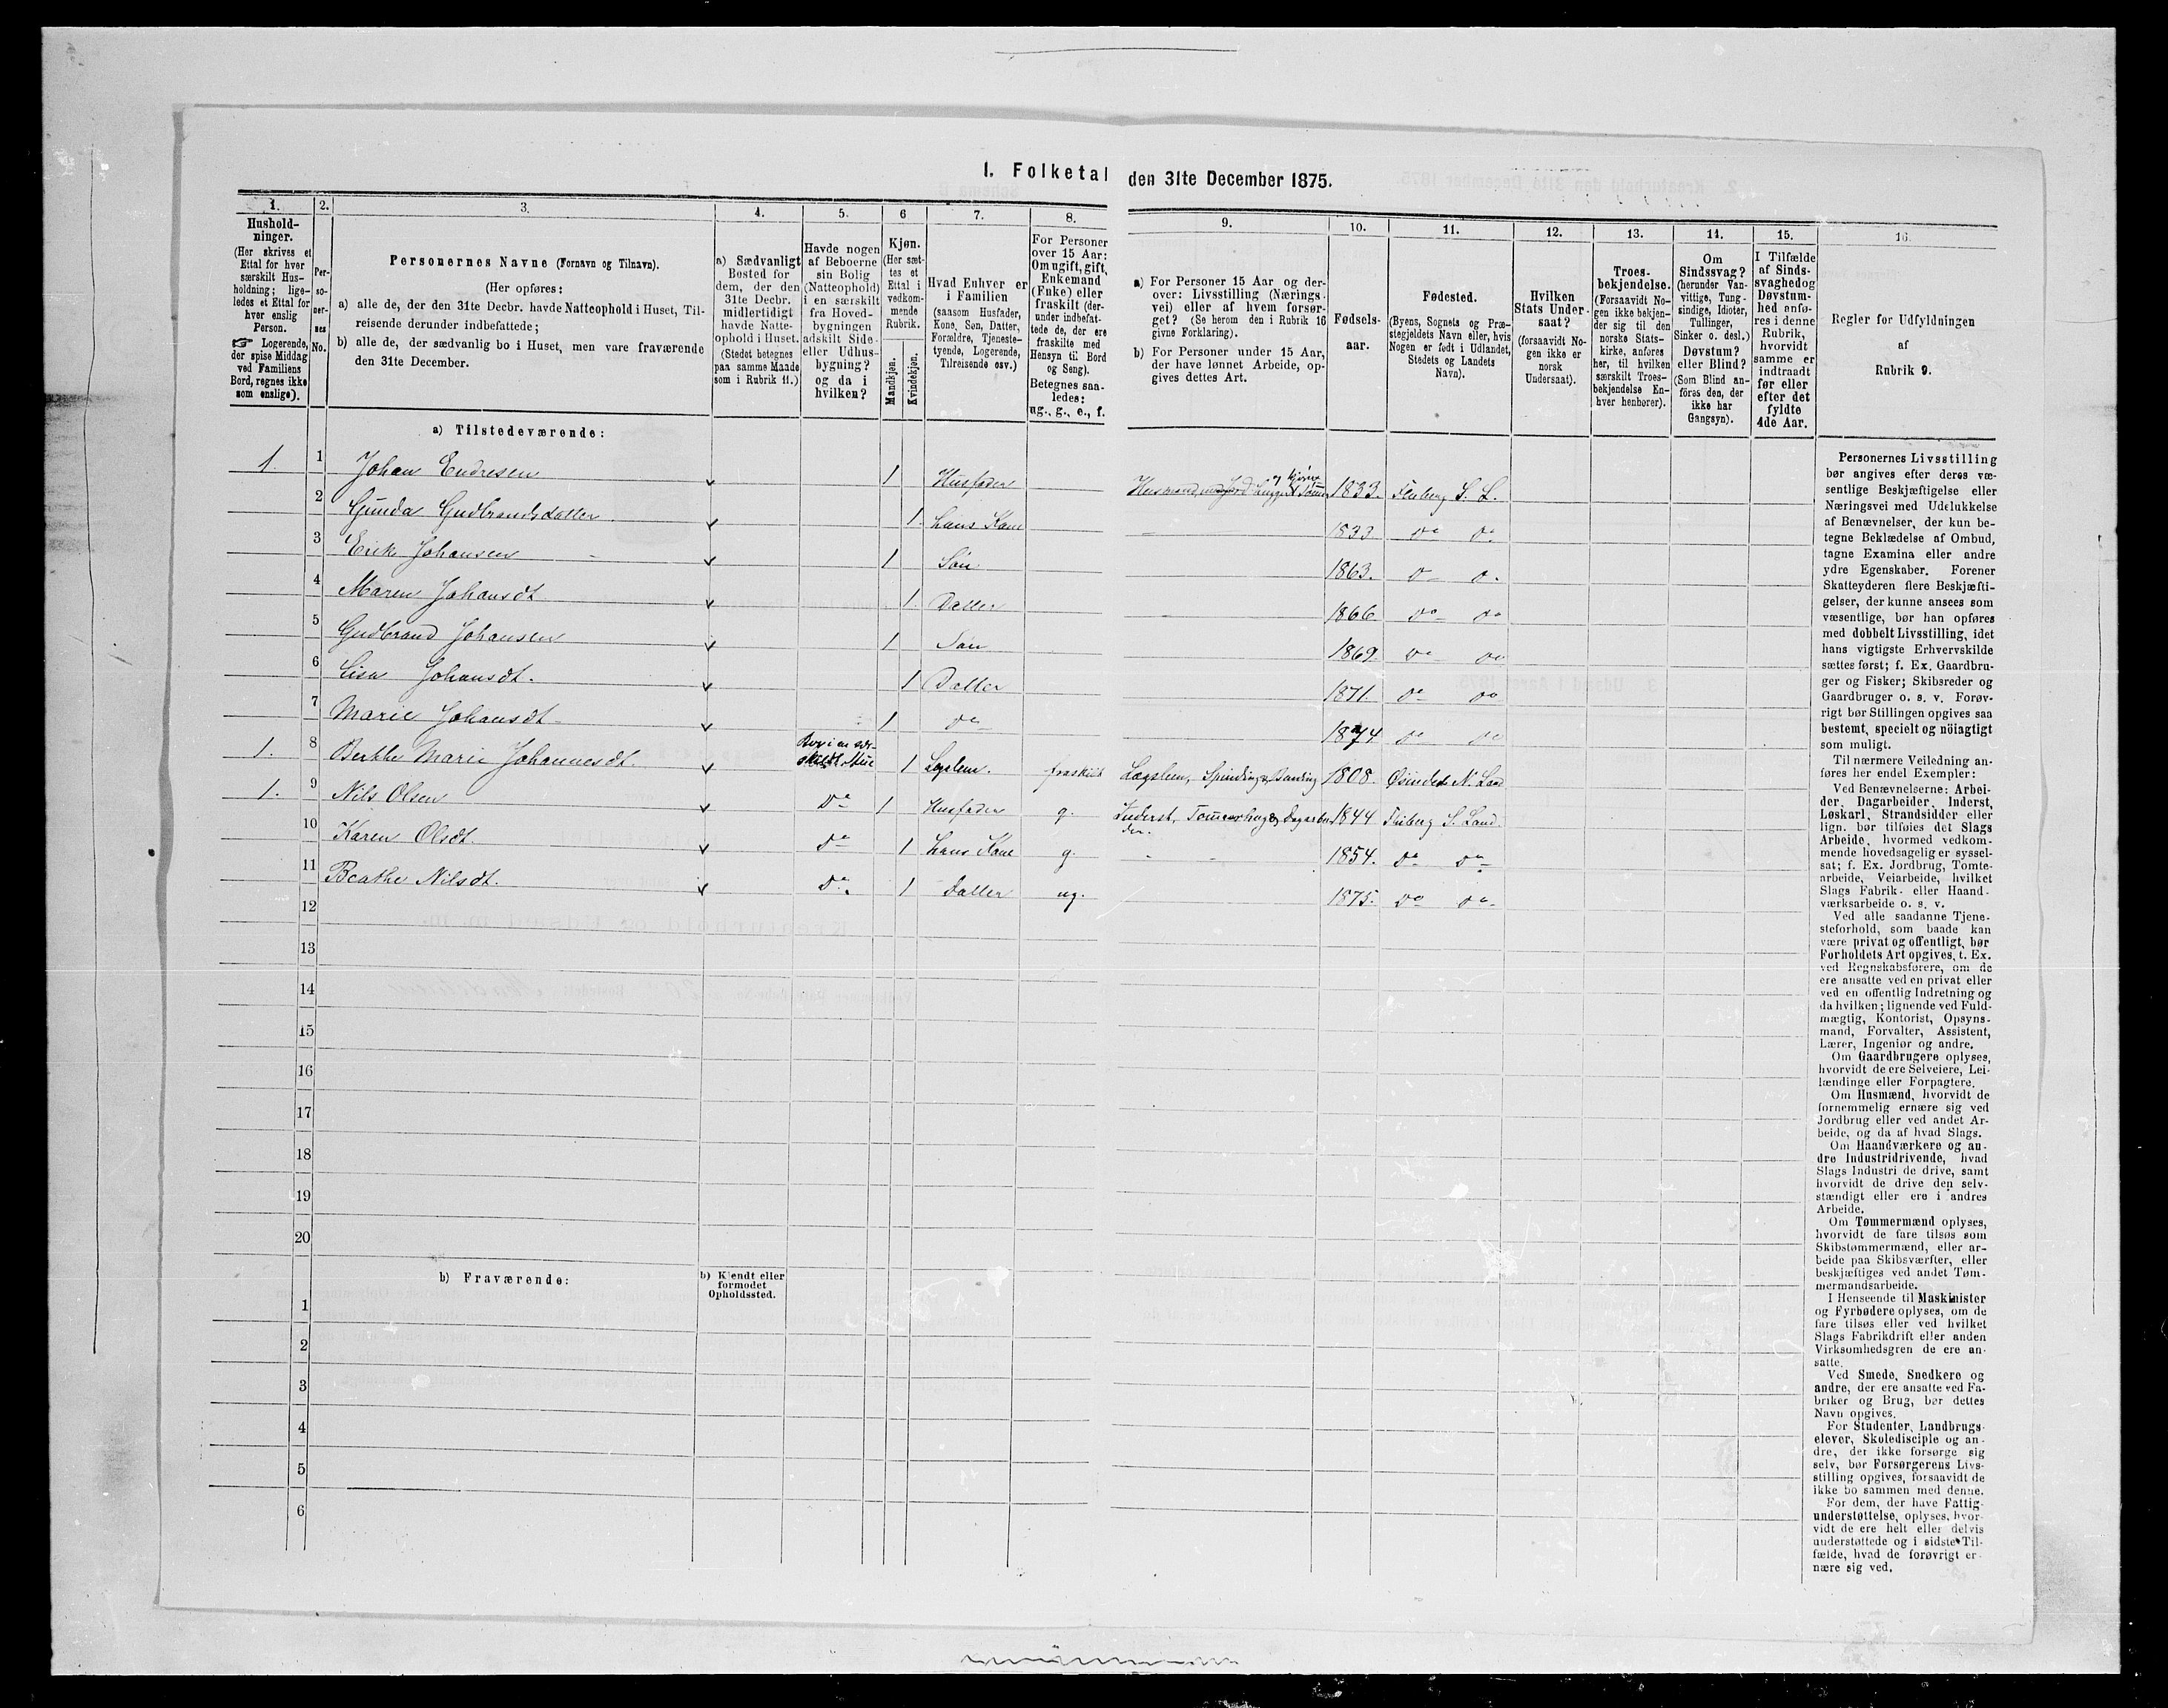 I. Folketal den 31te December 1875.
1. 2. 3. 4. 5. 6 7. 8. 9. 10. 11. 12. 13. 14. 15. 16.
Hushold-
ninger.
(Her skrives et
Ettal for hver
særskilt Hus-
holdning; lige-
ledes et Ettal for
hver enslig
Person.
☞ Logerende,
der spise Middag
ved Familiens
Bord, regnes ikke
som enslige).
Per-
so-
ner-
nes
No.
Personernes Navne (Fornavn og Tilnavn).
(Her opføres:
a) alle de, der den 31te Decbr. havde Natteophold i Huset, Til-
reisende derunder indbefattede;
b) alle de, der sædvanlig bo i Huset, men vare fraværende
den 31te December.
a) Sædvanligt
Bosted for
dem, der den
31te Decbr.
midlertidigt
havde Natte-
ophold i Huset.
(Stedet betegnes
paa samme Maade
som i Rubrik 11.)
Havde nogen
af Beboerne
sin Bolig
(Natteophold)
i en særskilt
fra Hoved-
bygningen
adskilt Side-
eller Udhus-
bygning?
og da i
hvilken?
Kjøn.
(Her sæt-
tes et
Ettal i
vedkom-
mende
Rubrik.
Mandkjøn.
Kvindekjøn.
Hvad Enhver er
i Familien
(saasom Husfader,
Kone, Søn, Datter,
Forældre, Tjeneste-
tyende, Logerende,
Tilreisende osv.)
For Personer
over 15 Aar:
Om ugift, gift,
Enkemand
(Enke) eller
fraskilt (der-
under indbefat-
tede de, der ere
fraskilte med
Hensyn til Bord
og Seng).
Betegnes saa-
ledes:
ug., g., e., f.
a) For Personer 15 Aar og der-
over: Livsstilling (Nærings-
vei) eller af hvem forsør-
get? (Se herom den i Rubrik 16
givne Forklaring).
b) For Personer under 15 Aar,
der have lønnet Arbeide, op-
gives dettes Art.
Fødsels-
aar.
Fødested.
(Byens, Sognets og Præ-
stegjeldets Navn eller, hvis
Nogen er født i Udlandet,
Stedets og Landets
Navn).
Hvilken
Stats Under-
saat?
(forsaavidt No-
gen ikke er
norsk
Undersaat).
Troes-
bekjendelse.
(Forsaavidt No-
gen ikke bekjen-
der sig til den
norske Stats-
kirke, anføres
her, til hvilken
særskilt Troes-
bekjendelse En-
hver henhører).
Om
Sindssvag?
(herunder Van-
vittige, Tung-
sindige, Idioter,
Tullinger,
Sinker o. desl.)
Døvstum?
eller Blind?
(Som Blind an-
føres den, der
ikke har
Gangsyn).
I Tilfælde
af Sinds-
svaghed og
Døvstum-
hed anfø-
res i denne
Rubrik,
hvorvidt
samme er
indtraadt
før eller
efter det
fyldte
4de Aar.
Regler for Udfyldningen
af
Rubrik 9.
a) Tilstedeværende:
1. 1 Johan Endresen v 1 Husfader Husmand med Jord hugger og kjører Tømmer 1833. Fluberg S. L.
2 Gunda Gudbrandsdatter. v 1. hans Kone 1833 Do Do
3 Erik Johansen v 1 Søn 1863. D D.
4 Maren Johansdt v 1. Datter 1866. Do Do
5 Gudbrand Johansen v 1 Søn 1869. Do Do
6 Lisa Johansdt. v 1 Datter 1871. Do Do
7 Marie Johansdt v 1 Do 1874 Do Do
1. 8 Berthe Marie Johannesdt. v Bor i en sær-
skildt Stue 1 Logslem. fraskilt Lægslem, Spinding, Banding 1808. Østsinden N. Land
1. 9 Nils Olsen v Do 1 Husfader g. Inderst, Tømmerhug & Dagarbei-
der. 1844 Fluberg S. Land.
10 Karen Olsdt. v Do 1 hans Kone g. 1854. Do Do
11 Beathe Nilsdt. v Do. 1 Datter ug. 1875. Do Do
12
13
14
15
16
17
18
19
20
b) Fraværende:
b) Kjendt eller
formodet
Opholdssted.
1
2
3
4
5
6
Personernes Livsstilling
bør angives efter deres væ-
sentlige Beskjæftigelse eller
Næringsvei med Udelukkelse
af Benævnelser, der kun be-
tegne Beklædelse af Ombud,
tagne Examina eller andre
ydre Egenskaber. Forener
Skatteyderen flere Beskjæfti-
gelser, der kunne ansees som
væsentlige, bør han opføres
med dobbelt Livsstilling, idet
hans vigtigste Erhvervskilde
sættes først; f. Ex. Gaardbru-
ger og Fisker; Skibsreder og
Gaardbruger o. s. v. Forøv-
rigt bør Stillingen opgives saa
bestemt, specielt og nöiagtigt
som muligt.
Til nærmere Veiledning an-
føres her endel Exempler:
Ved Benævnelserne: Arbei-
der, Dagarbeider, Inderst,
Løskarl, Strandsidder eller
lign. bør tilføies det Slags
Arbeide, hvormed vedkom-
mende hovedsagelig er syssel-
sat; f. Ex. Jordbrug, Tomte-
arbeide, Veiarbeide, hvilket
Slags Fabrik- eller Haand-
værksarbeide o. s. v.
Ved alle saadanne Tjene-
steforhold, som baade kan
være privat og offentligt, bør
Forholdets Art opgives, t. Ex.
ved Regnskabsførere, om de
ere ansatte ved en privat eller
ved en offentlig Indretning og
da hvilken; lignende ved Fuld-
mægtig, Kontorist, Opsyns-
mand, Forvalter, Assistent,
Lærer, Ingeniør og andre.
Om Gaardbrugere oplyses,
hvorvidt de ere Selveiere, Lei-
lændinge eller Forpagtere.
Om Husmænd, hvorvidt de
fornemmelig ernære sig ved
Jordbrug eller ved andet Ar-
beide, og da af hvad Slags.
Om Haandværkere og an-
dre Industridrivende, hvad
Slags Industri de drive, samt
hvorvidt de drive den selv-
stændigt eller ere i andres
Arbeide.
Om Tømmermænd oplyses,
hvorvidt de fare tilsøs som
Skibstømmermænd, eller ar-
beide paa Skibsværfter, eller
beskjæftiges ved andet Tøm-
mermandsarbeide.
I Henseende til Maskinister
og Fyrbødere oplyses, om de
fare tilsøs eller ved hvilket
Slags Fabrikdrift eller anden
Virksomhedsgren de ere an-
satte.
Ved Smede, Snedkere og
andre, der ere ansatte ved Fa-
briker og Brug, bør dettes
Navn opgives.
For Studenter, Landbrugs-
elever, Skoledisciple og an-
dre, der ikke forsørge sig
selv, bør Forsørgerens Livs-
stilling opgives, forsaavidt de
ikke bo sammen med denne.
For dem, der have Fattig-
understøttelse, oplyses, hvor-
vidt de ere helt eller delvis
understøttede og i sidste Til-
fælde, hvad de forøvrigt er-
nære sig ved.